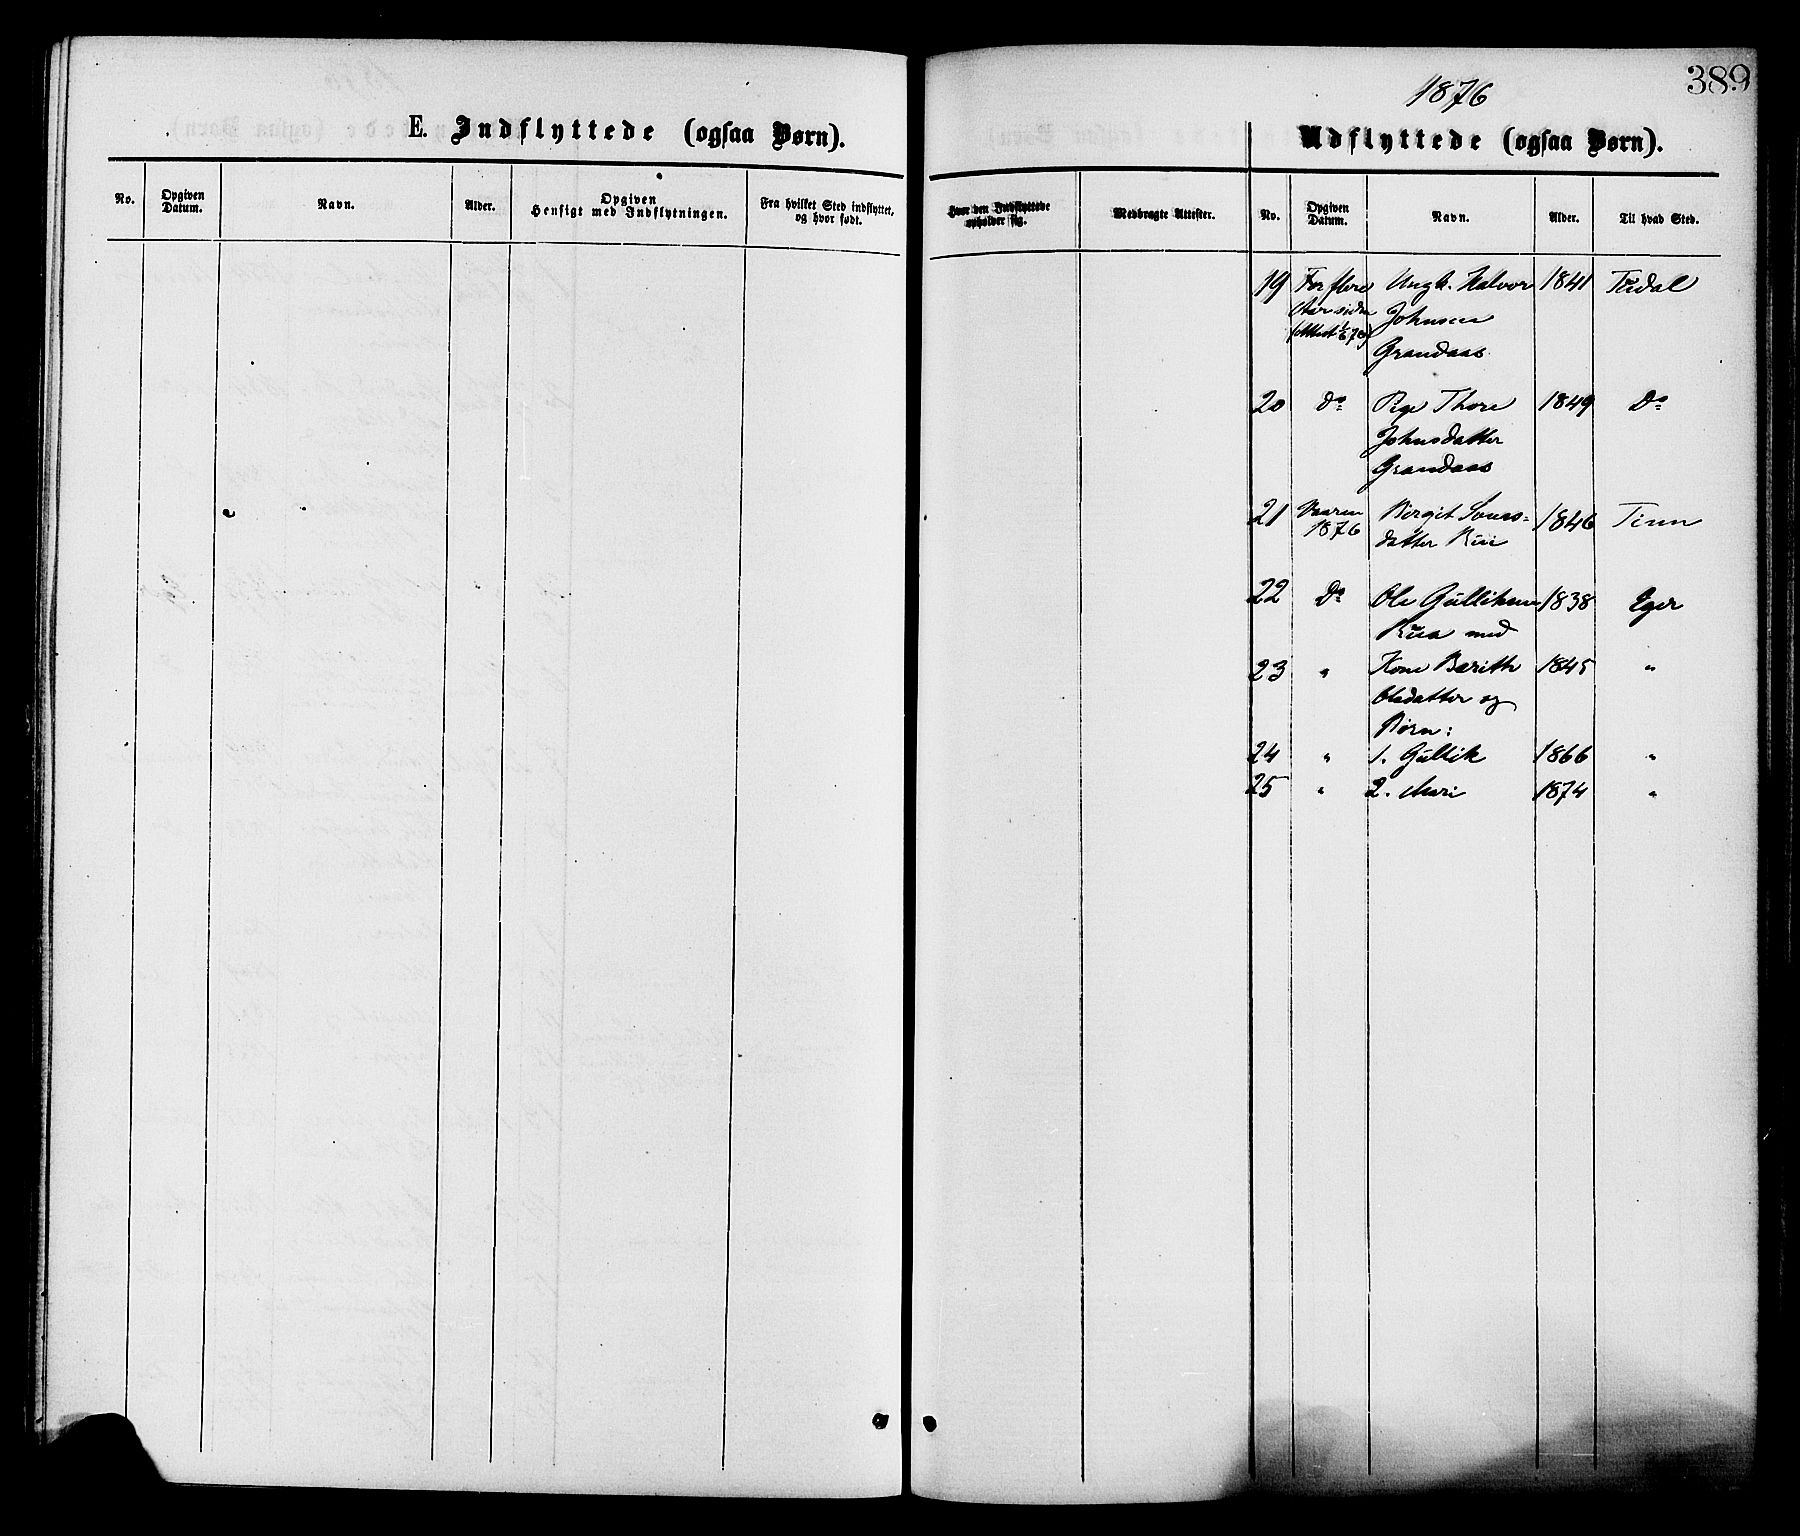 389
1876
E. Indflyttede (ogsaa Børn).
Udflyttede (ogsaa Børn).
No. Opgiven Datum. Navn. Alder. Opgiven Hensigt med Indflytningen. Fra hvilket Sted indflyttet, og hvor født.
Hvor den Indflyttede opholder sig. Medbragte Attester. No. Opgiven Datum. Navn. Alder. Til hvad Sted.
19 For flere Ungk. Halvor 1841 Tudal
Aar siden Johnsen
(Attest
Grandaas
20 Do Pige Thore 1849 Do
Johnsdatter
Grandaas
21 Vaaren Birgit 1846 Tinn
1876 datter
22 Do Ole Gulliksen 1838 Eger
med
23 " Kone Berith 1845 "
Olsdatter og
Børn:
24 " 1. Gullik 1866 "
25 " 2. Mari 1874 "